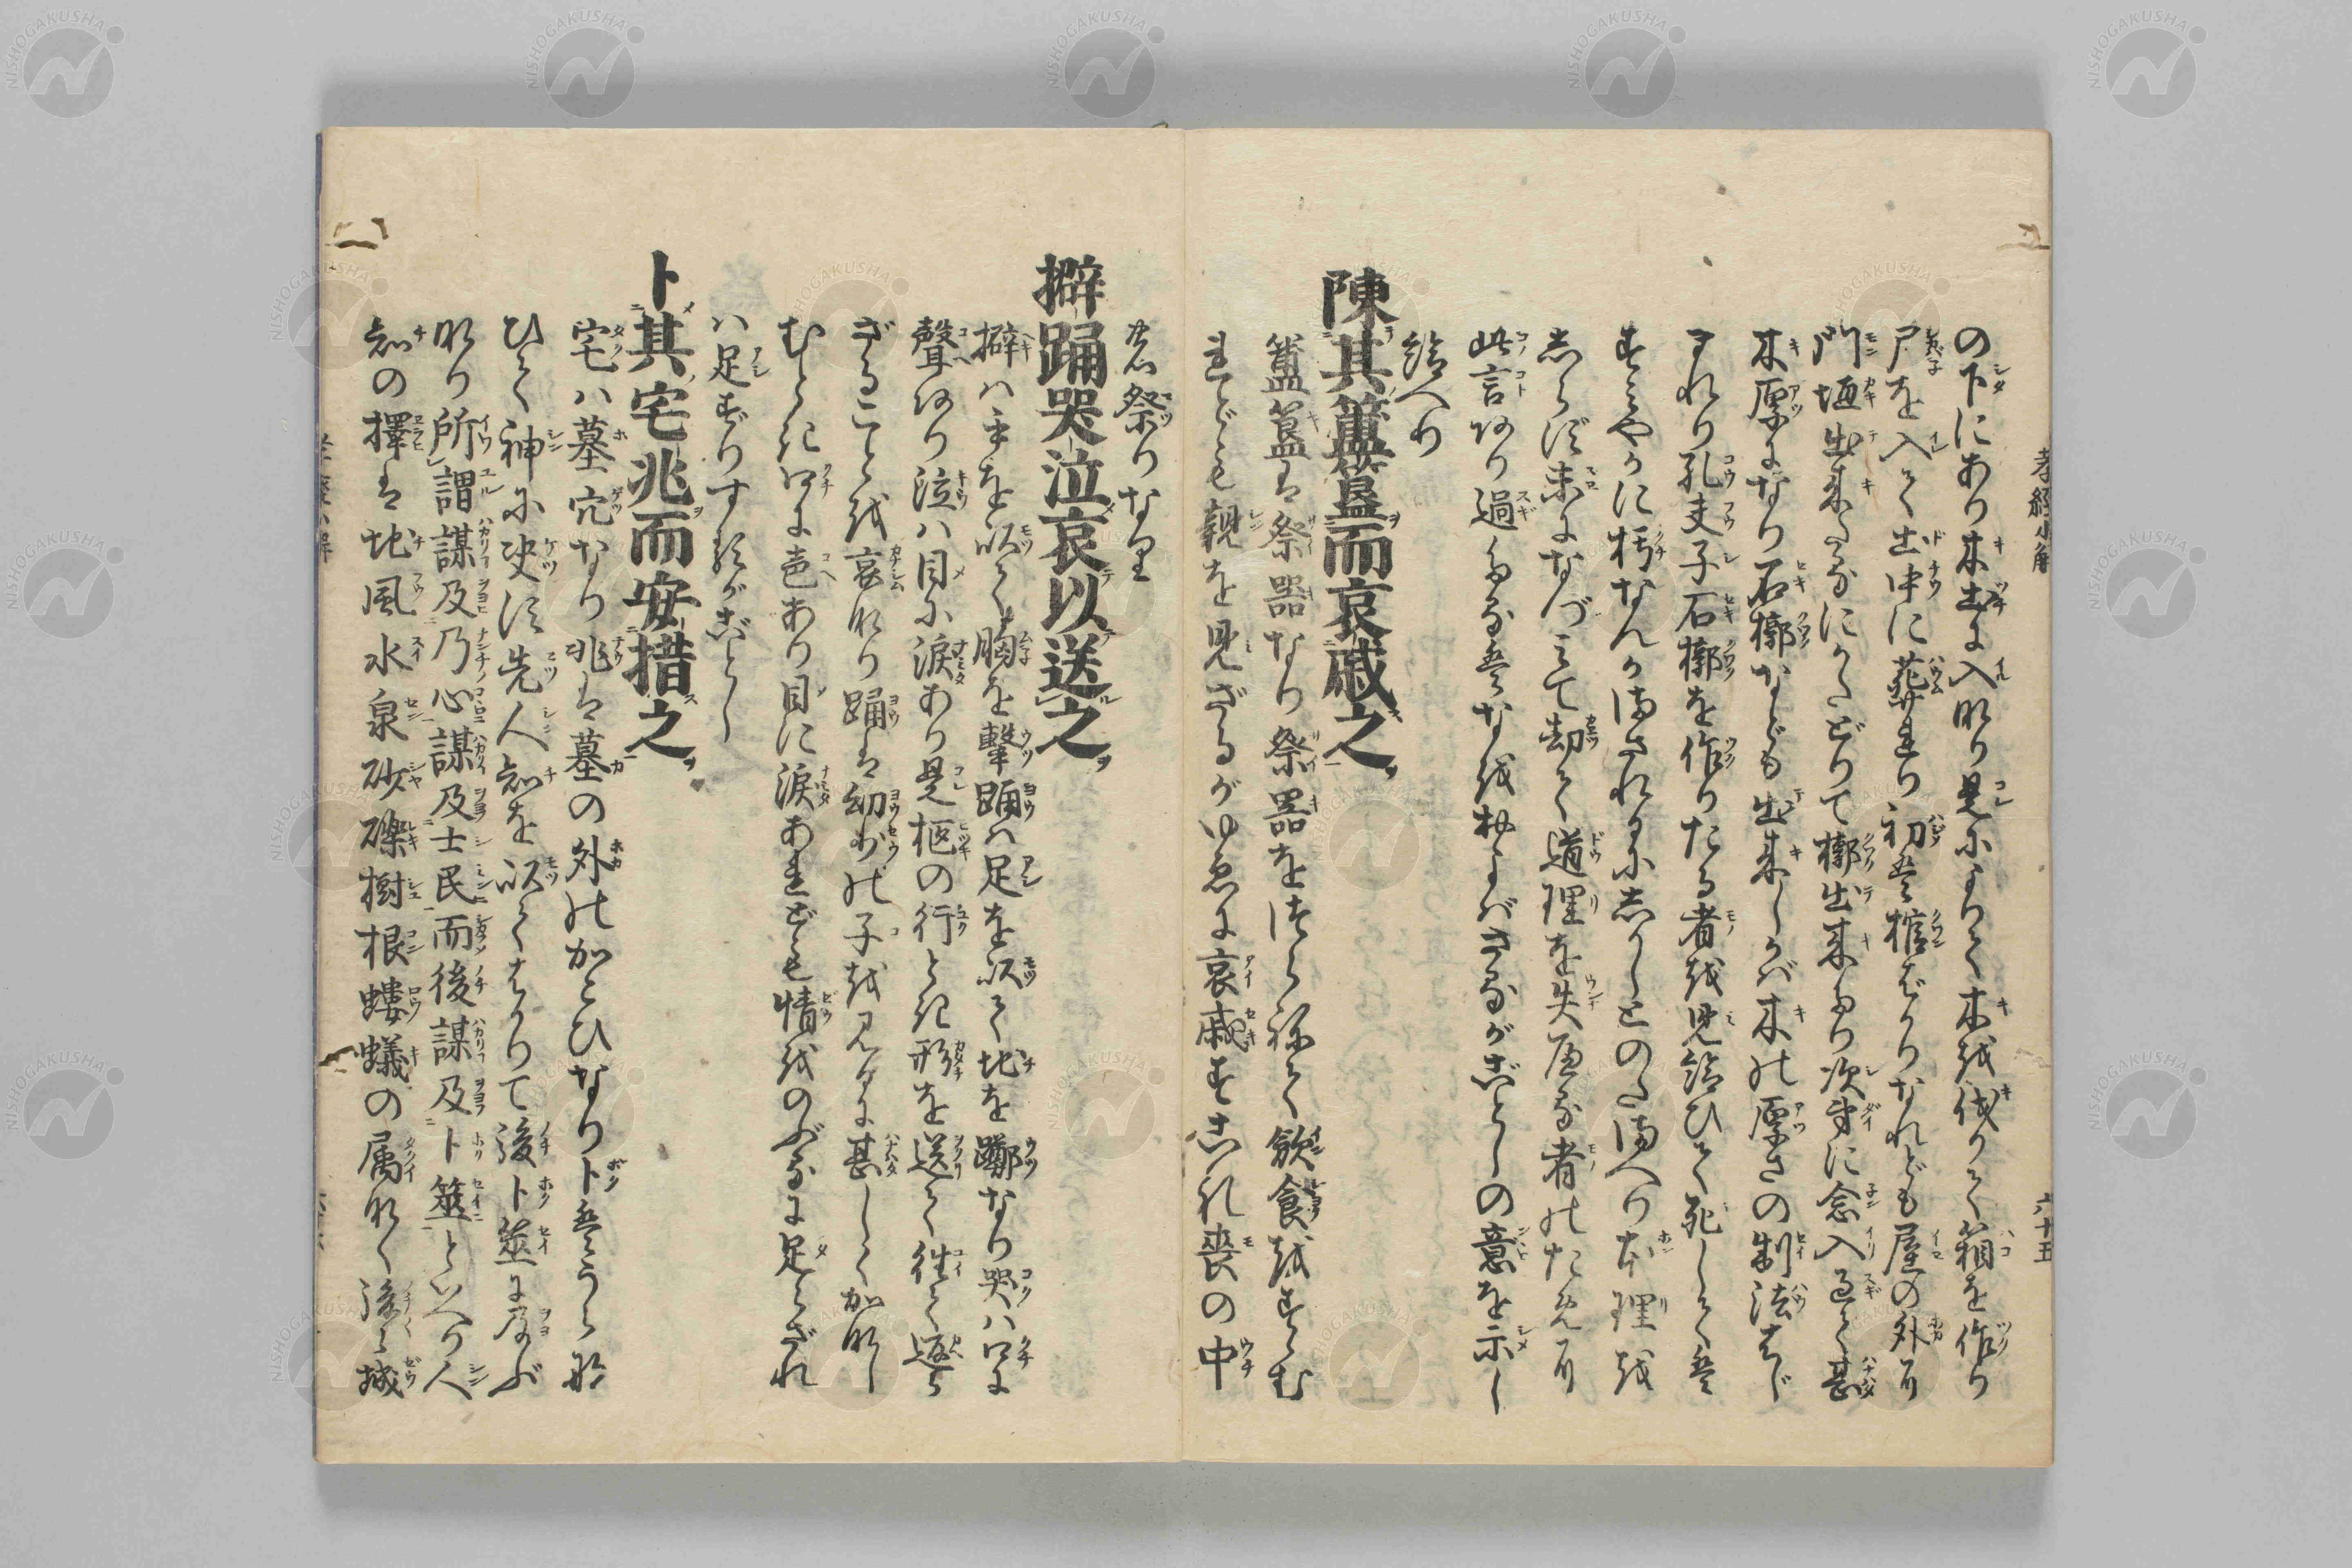 孝經小解
六十五
の下にあり木土に入れり是によりて木を伐りて箱を作り
尸を入て土中に葬れり初は棺ばかりなれども屋の外に
門垣出来たるにかたどりて槨出来たり次第に念入過て甚
木厚になり石槨なども出来しかば木の厚さの制法はじ
まれり孔夫子石槨を作りたる者を見給ひて死しては
すみやかに朽なんかまされるにしかじとのたまへり本理を
しらず末になづみて却て道理を失へる者のために
此言あり過たるはなを
がごとしの意を示し
給へり
陳其簠簋而哀戚之
簠簋は祭器なり祭器をつらねて飲食をすゝむ
れども親を見ざるがゆゑに哀戚すこれ喪の中
の祭りなり
擗踊哭泣哀以送之
擗ハ手を以て胸を撃踊ハ足を以て地を躑なり哭ハ口に
聲あり泣ハ目に涙あり是柩の行とき形を送て往て返ら
ざることを哀めり踊は幼少の子を見るに甚しくかなし
むとき口に声あり目に涙あれども情をのぶるに足らざれ
ハ足ずりするがごとし
卜其宅兆而安措之
宅ハ墓穴なり兆は墓の外のかこひなり卜はうらな
ひて神に决す先人知を以てはかりて後卜筮に及ぶ
なり所謂謀及乃心謀及士民而後謀及卜筮といへり人
知の擇は地風水泉砂礫樹根螻蟻の属なく後々城